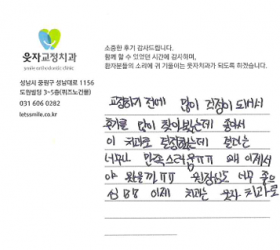 웃자교정치과
소중한 후기 감사드립니다.
함께 할 수 있었던 시간에 감사하며,
환자분들의 소리에 귀 기울이는 웃자치과가 되도록 하겠습니다.
성남시 중원구 성남대로 1156
도원빌딩 3~5층(퀴즈노건물)
031 606 0282
letssmile.co.kr
교정하기 전에 많이 걱정이 되어서
후기를 많이 찾아봤는데 좋아서
이 치과로 결정했는데 결과는
너무나 만족스러움ㅠㅠ 왜 이제서
야 왔을까ㅠㅠ 원장님도 너무 좋으
심 BB 이제 치과는 웃자 치과로